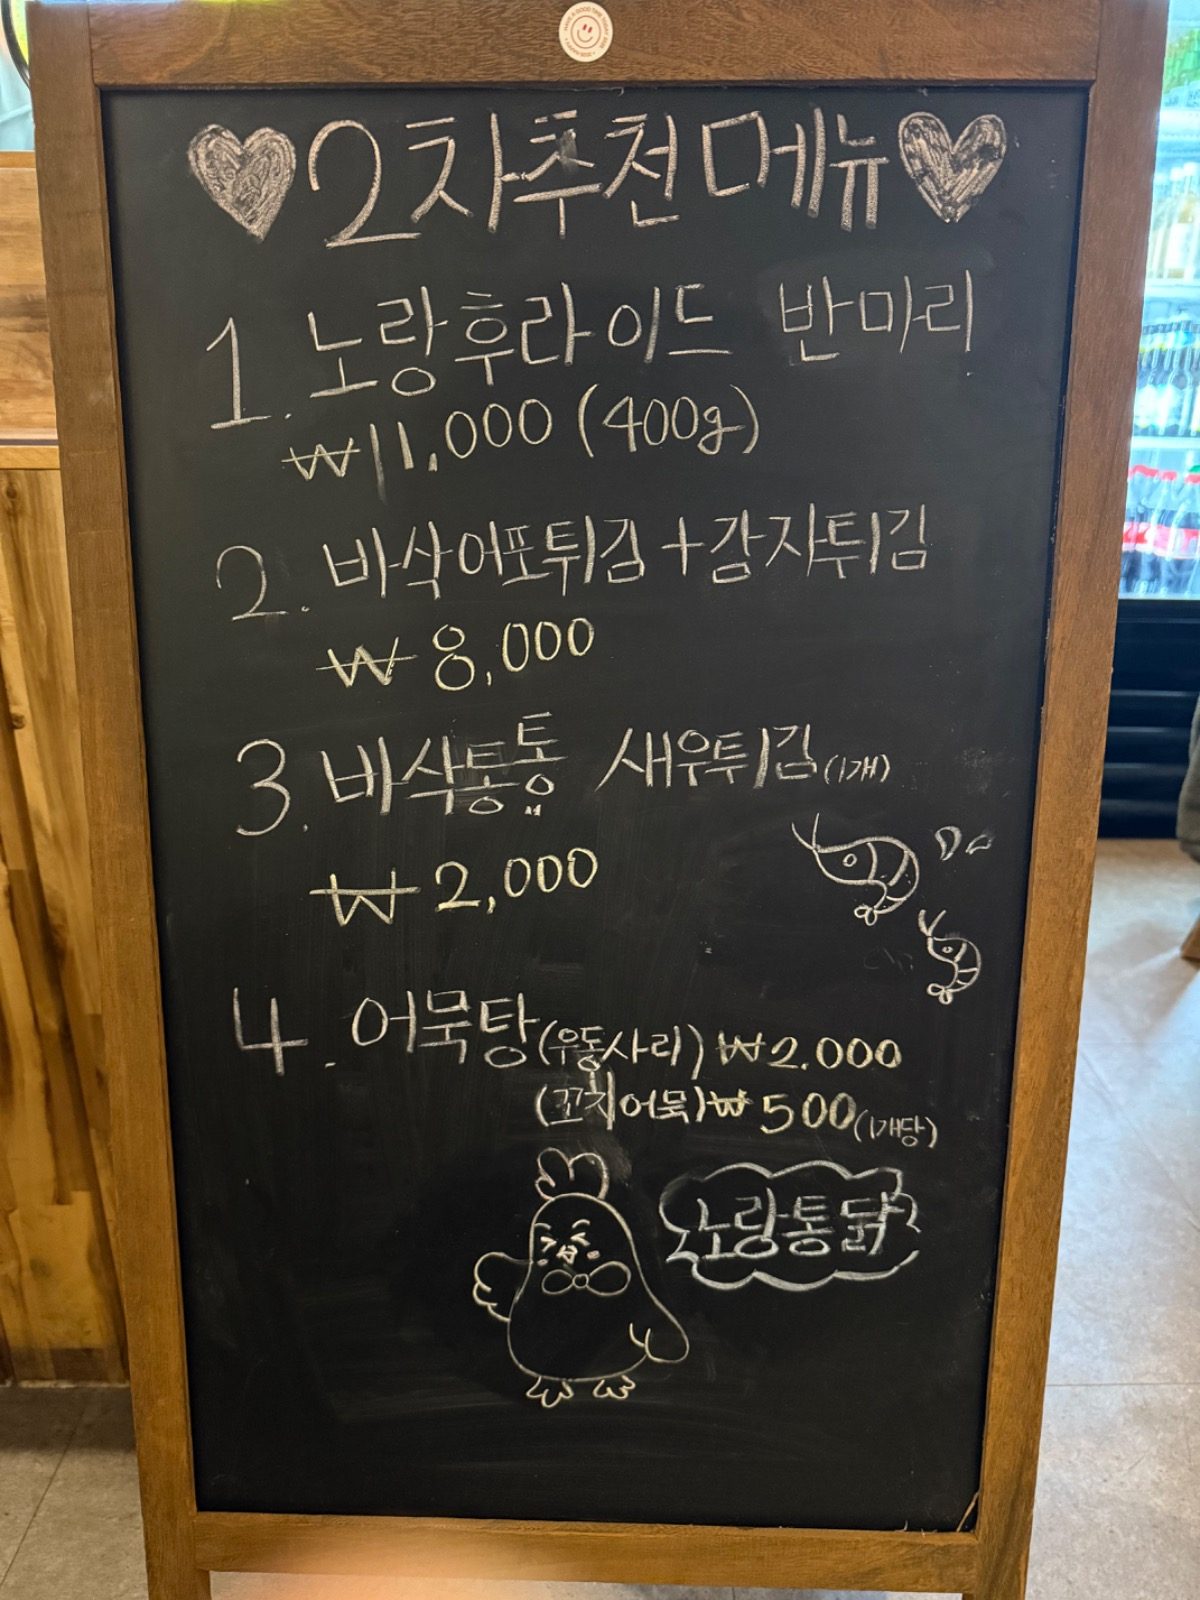 2차추천메뉴
1. 노랑후라이드 반마리
₩11,000 (400g)
2. 바삭어포튀김+감자튀김
₩8,000
3. 바삭통통 새우튀김(1개)
₩2,000
4. 어묵탕(우동사리) ₩2.000
(꼬치어묵)₩500(1개당)
노랑통닭